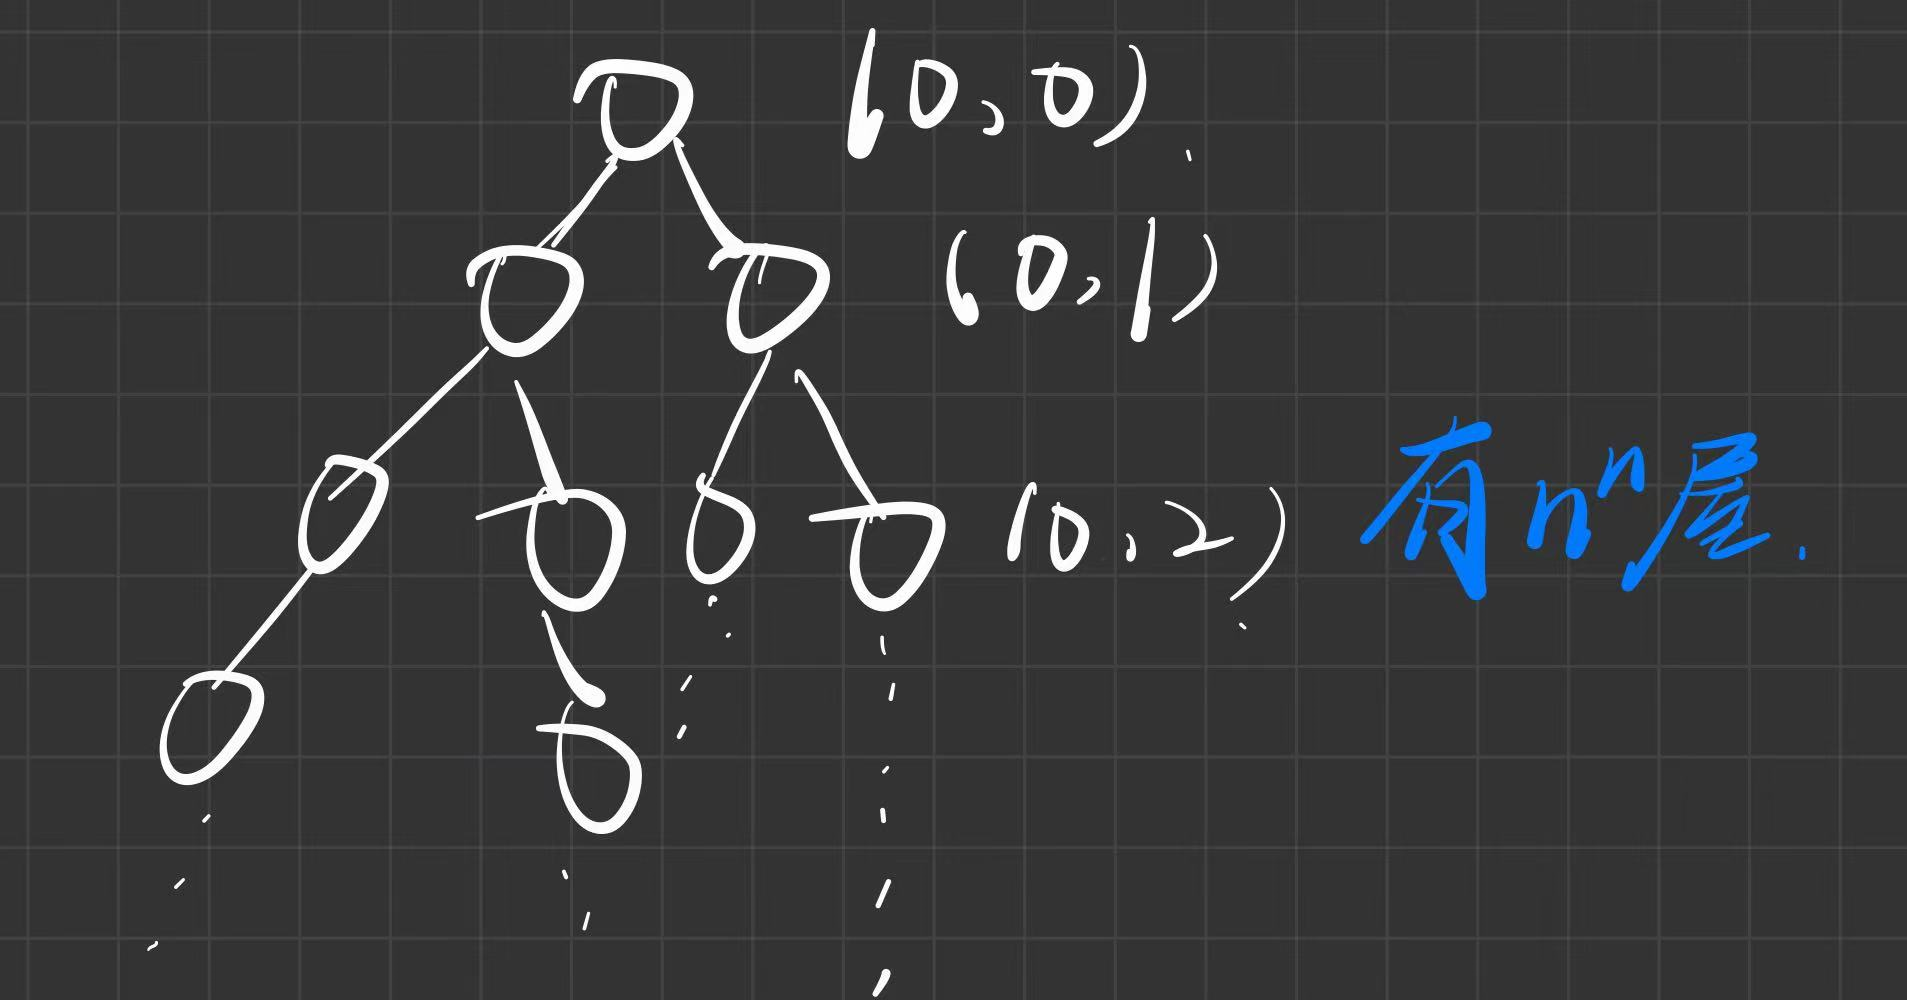 (0,0)
(0,1)
(0,2)
有nⁿ层.